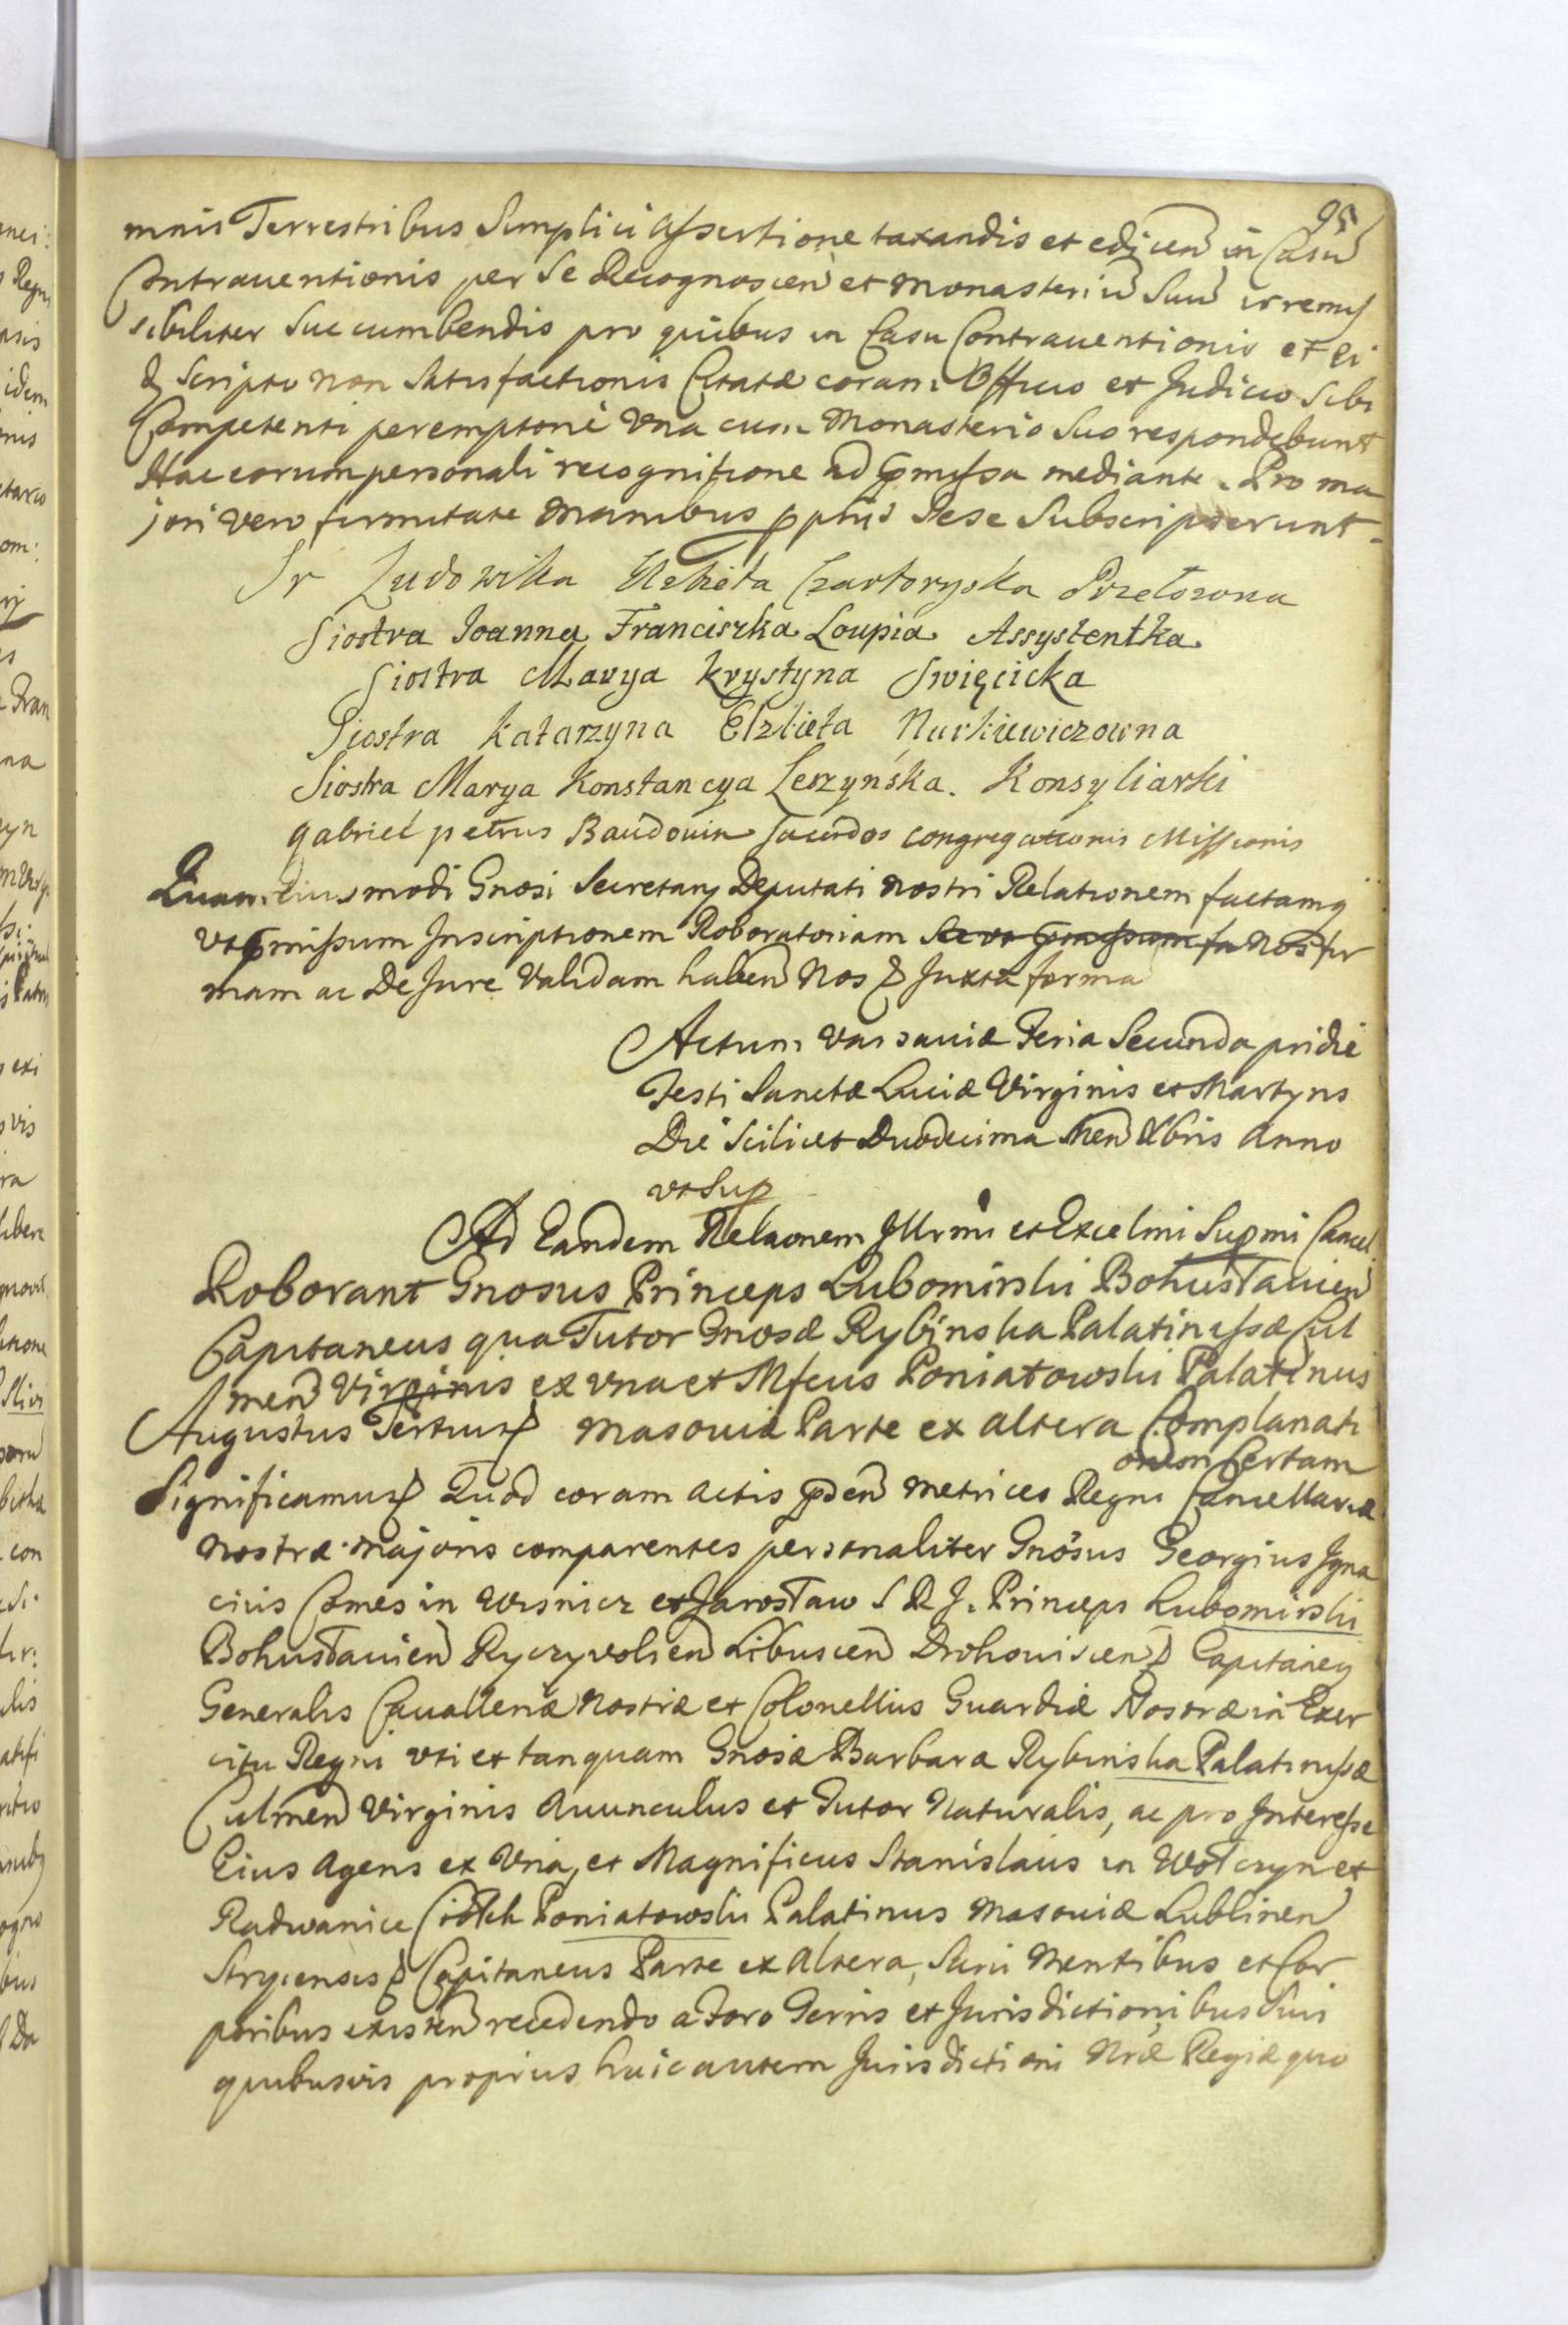 95
mnis Terrestribus Simplici assertione taxandis et edicen in Casu
Contrauentionis per se Recognoscen et Monasteriu Suu irremis
sibiliter Succumbendis pro quibus in Casu Contrauentionis et ei
Scripto non Satisfactionis Citatæ coram Officio et Judicio Sibi
Competenti peremptorie Vna cum Monasterio Suo respondebunt
Hac eorum personali recognitione ad pmissa mediante. Pro ma
jori Vero firmitate Manibus pprijs Sese Subscripserunt.
Sr Ludowika Elzbieta Czartoryska Przełozona
Siostra Joanna Franciszka Loupia Assystentka
Siostra Marya Krystyna Swięcicka
Siostra Katarzyna Elzbieta Nurkiewiczowna
Siostra Marya Konstancya Leszyńska. Konsyliarki
gabriel petrus Baudouin Sacerdos congregationis Missionis
Quam eiusmodi Gnosi Secretarij Deputati nostri Relationem factamq
vt pmissum Inscriptionem Roboratoriam Nos fir
mam ac De Jure Validam haben Nos Juxta forma
Actum Varsaviæ Feria Secunda pridie
Festi Sanctæ Luciæ Virginis et Martyris
Die Scilicet Duodecima Men Xbris Anno
vt Sup
Ad Eandem Relaonem Jllrmi et Excelmi Supmi Cancel.
Roborant Gnosus Princeps Lubomirski Bohusłauien
Capitaneus qua Tutor Gnosæ Rybinska Palatinissæ Cul
men Virginis ex vna et Mfcus Poniatowski Palatinus
Augustus Tertius Masouiæ Parte ex altera Complanati
onem Certam
Significamus Quod coram Actis psen Metrices Regni Cancellariæ
nostræ Majoris comparentes personaliter Gnosus Georgius Jgna
cius Comes in Wisnicz et Jarosław S R J. Princeps Lubomirski
Bohusłauien Ryczyvolien Libuscen Drohouiscen Capitaneq
Generalis Cavalleriæ Nostræ et Colonellus Guardiæ Nostræ in Exer
citu Regni vti et tanquam Gnosæ Barbara Rybinska Palatinissæ
Culmen Virginis Auunculus et Tutor Naturalis, ac pro Interesse
Eius Agens ex Vna, et Magnificus Stanislaus in Wołczyn et
Radwanice Ciołek Poniatowski Palatinus Masouiæ Lublinen
Stryiensis Capitaneus Parte ex Altera, Sani Mentibus et Cor
poribus existen recedendo a Foro Terris et Jurisdictionibus Suis
quibusvis proprius huic autem Jurisdictioni Nræ Regiæ quo